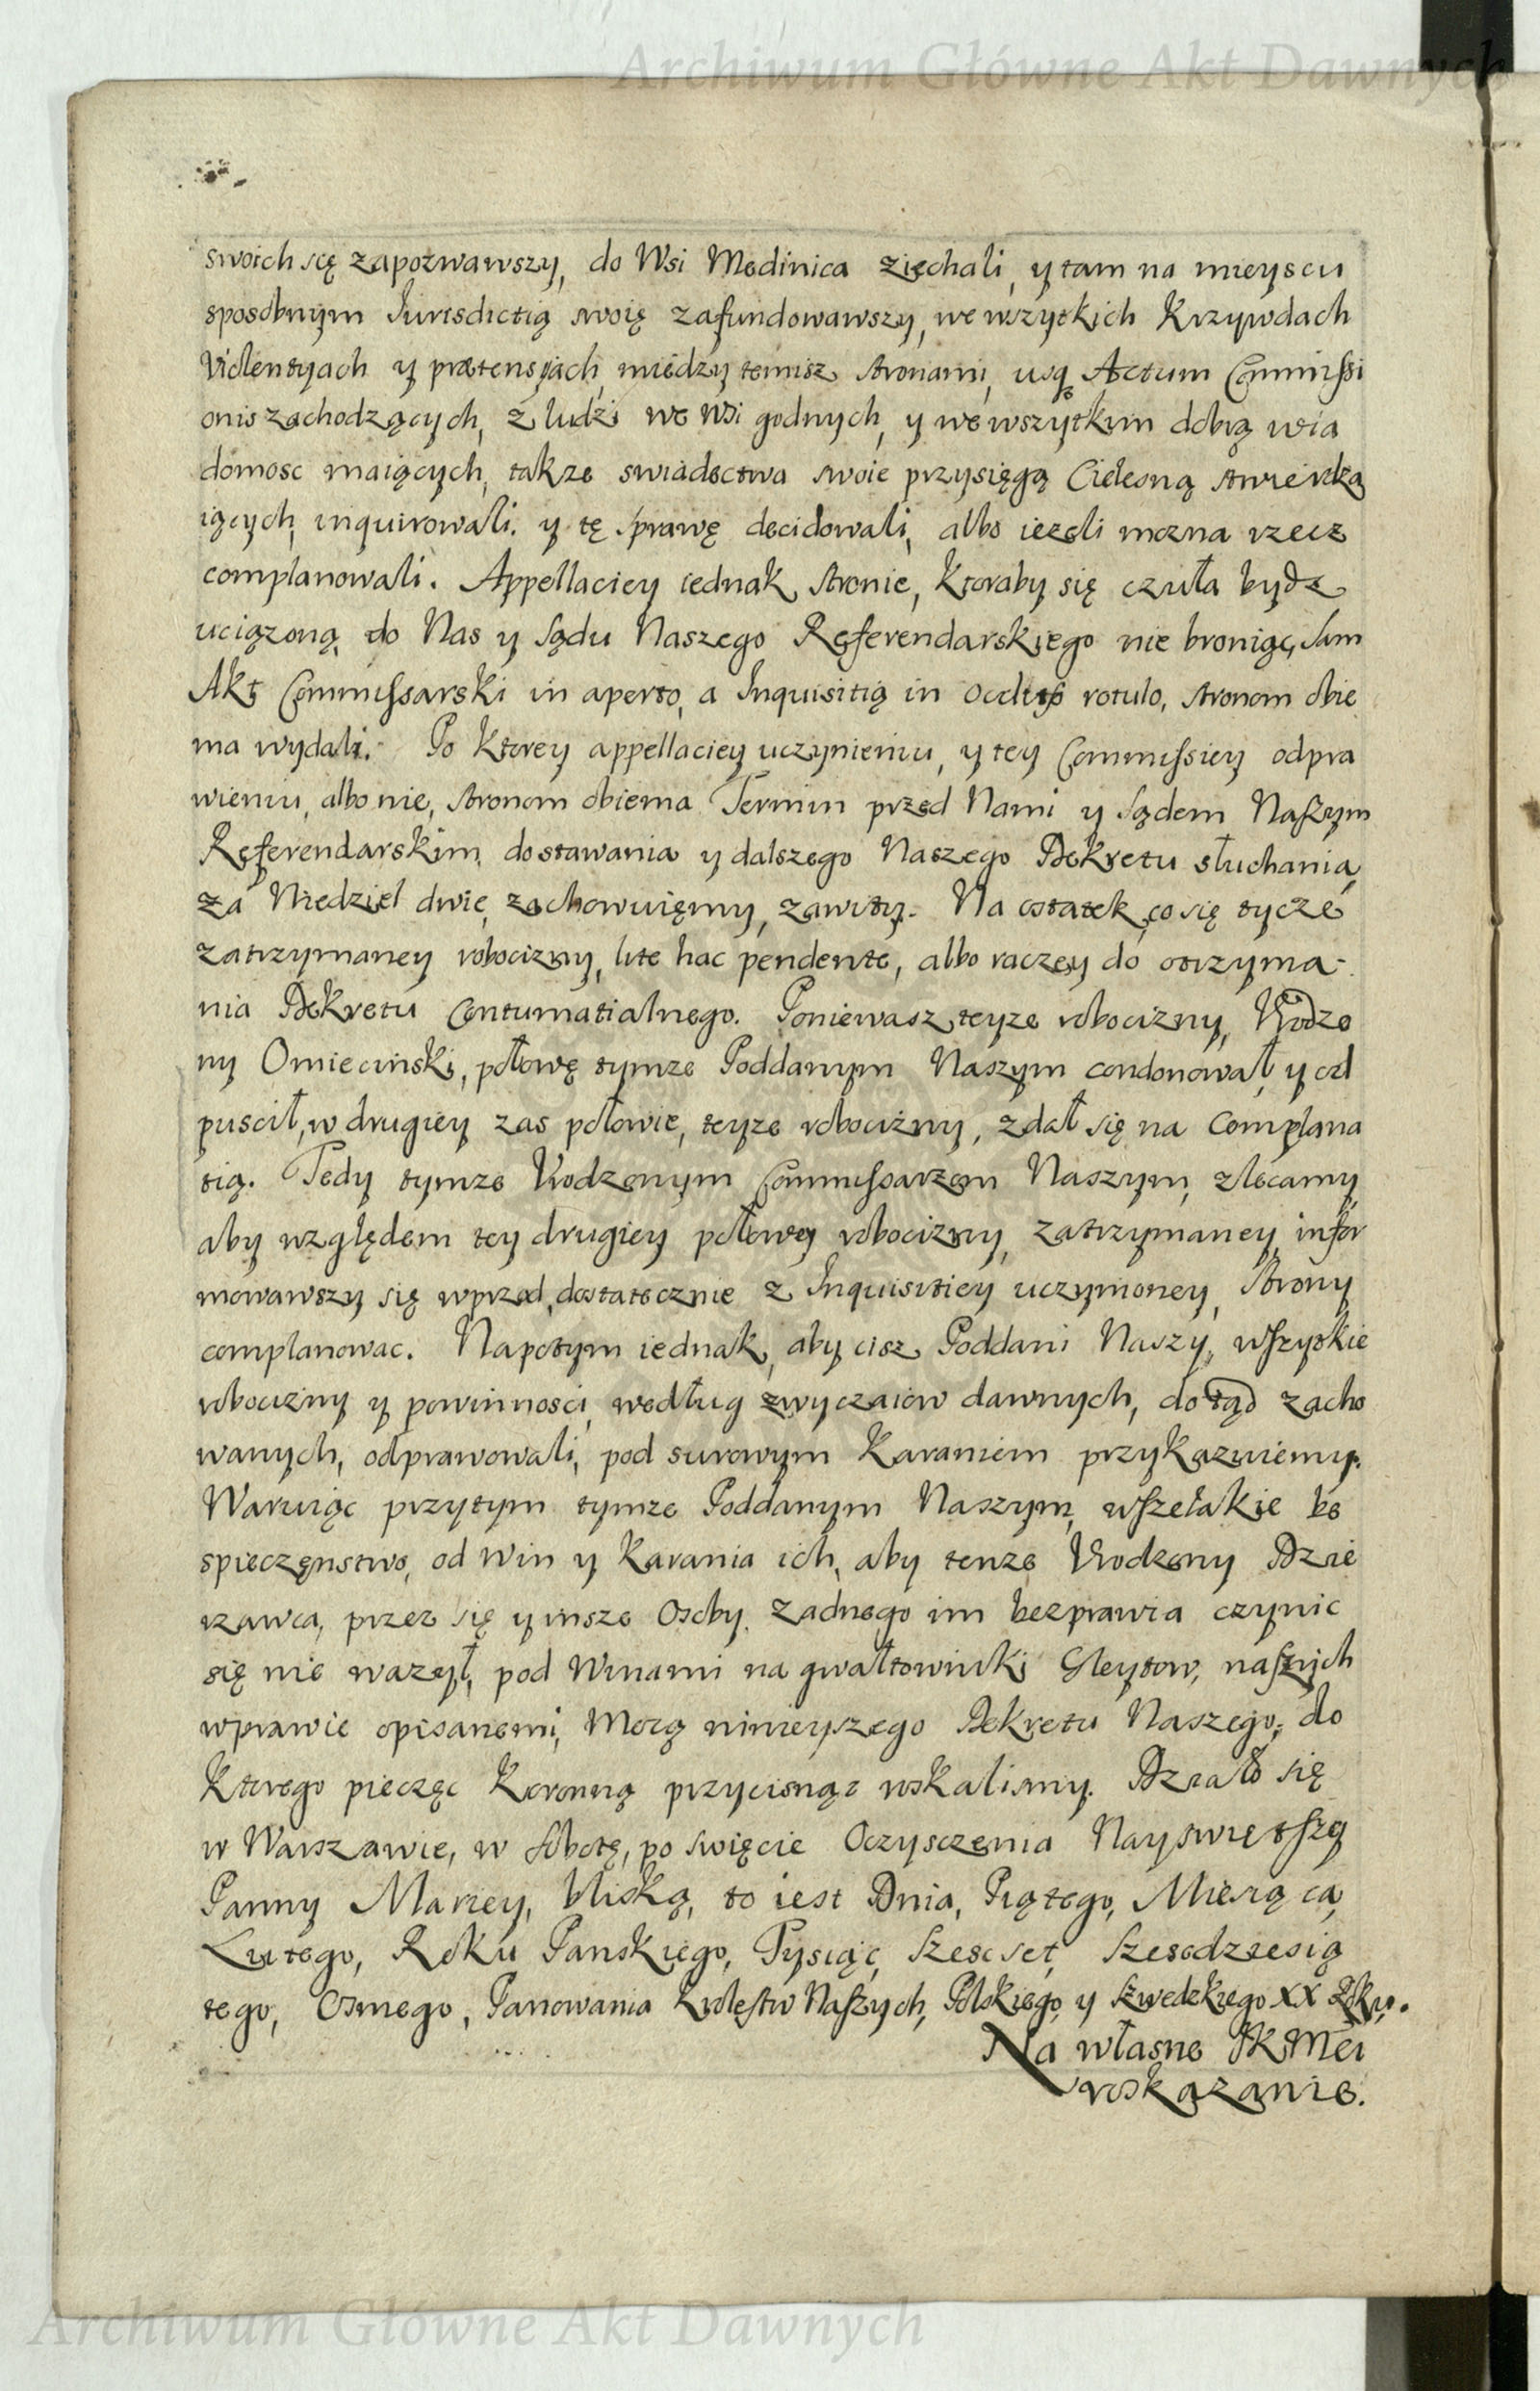 Archiwum Główne Akt Dawnych
swoich się zapozwawszy, do Wsi Medinica ziechali, y tam na mieyscu
sposobnym Iurisdictią swoię zafundowawszy, we wszytkich Krzywdach
Violentyach y prætensyach, miedzy temisz stronami, usq Actum Commissi
onis zachodzących, z ludzi we Wsi godnych, y we wszytkim dobrą wia
domosc maiących, takze swiadectwa swoie przysięgą Cielesną stwierdza
iących, inquirowali. y tę sprawę decidowali, albo iezeli mozna rzecz
complanowali. Appellaciey iednak stronie, Ktoraby się czuła bydz
uciązoną, do Nas y Sądu Naszego Referendarskiego nie broniąc, sam
Akt Commissarski in aperto, a Inquisitią in occluso rotulo, stronom obie
ma wydali. Po Ktorey appellaciey uczynieniu, y tey Commissiey odpra
wieniu, albo nie, stronom obiema Termin przed Nami y Sądem Naszym
Referendarskim, do stawania y dalszego Naszego Dekretu słuchania,
za Niedziel dwie, zachowuięmy, zawity. Na ostatek, co się tycze
zatrzymaney robocizny, lite hac pendente, albo raczey do otrzyma-
nia Dekretu Contumatialnego. Poniewasz teyze robocizny, Urodzo
ny Omieciński, połowę tymze Poddanym Naszym condonował, y od
puscił, w drugiey zas połowie, teyze robocizny, zdał się na Complana
tią. Tedy tymze Urodzonym Commissarzom Naszym, zlecamy,
aby względem tey drugiey połowy robocizny, zatrzymaney, infor
mowawszy się wprzod, dostatecznie z Inquisitiey uczynioney, strony
complanowac. Napotym iednak, aby cisz Poddani Naszy, wszytkie
robocizny y powinnosci, według zwyczaiow dawnych, dotąd zacho
wanych, odprawowali, pod surowym Karaniem przykazuiemy.
Waruiąc przytym tymze Poddanym Naszym, wszelakie be
spieczęnstwo, od win y Karania ich, aby tenze Urodzony Dzie
rzawca, przez się y insze Osoby, zadnego im bezprawia czynic
się nie wazył, pod Winami na gwałtowniki Gleytow, naszych
wprawie opisanemi, Mocą ninieyszego Dekretu Naszego, do
Ktorego pieczęc Koronną przycisnąc roskalismy. Działo się
w Warszawie, w Sobotę, po swięcie Oczysczenia Nayswiętszy
Panny Mariey, bliską, to iest Dnia, Piątego, Miesiąca,
Lutego, Roku Panskiego, Tysiąc, Szescset, Szescdziesią
tego, Osmego, Panowania Krolestw Naszych, Polskiego, y Szwedzkiego XX Roku.
Na własne JKMci
roskazanie.
Archiwum Główne Akt Dawnych